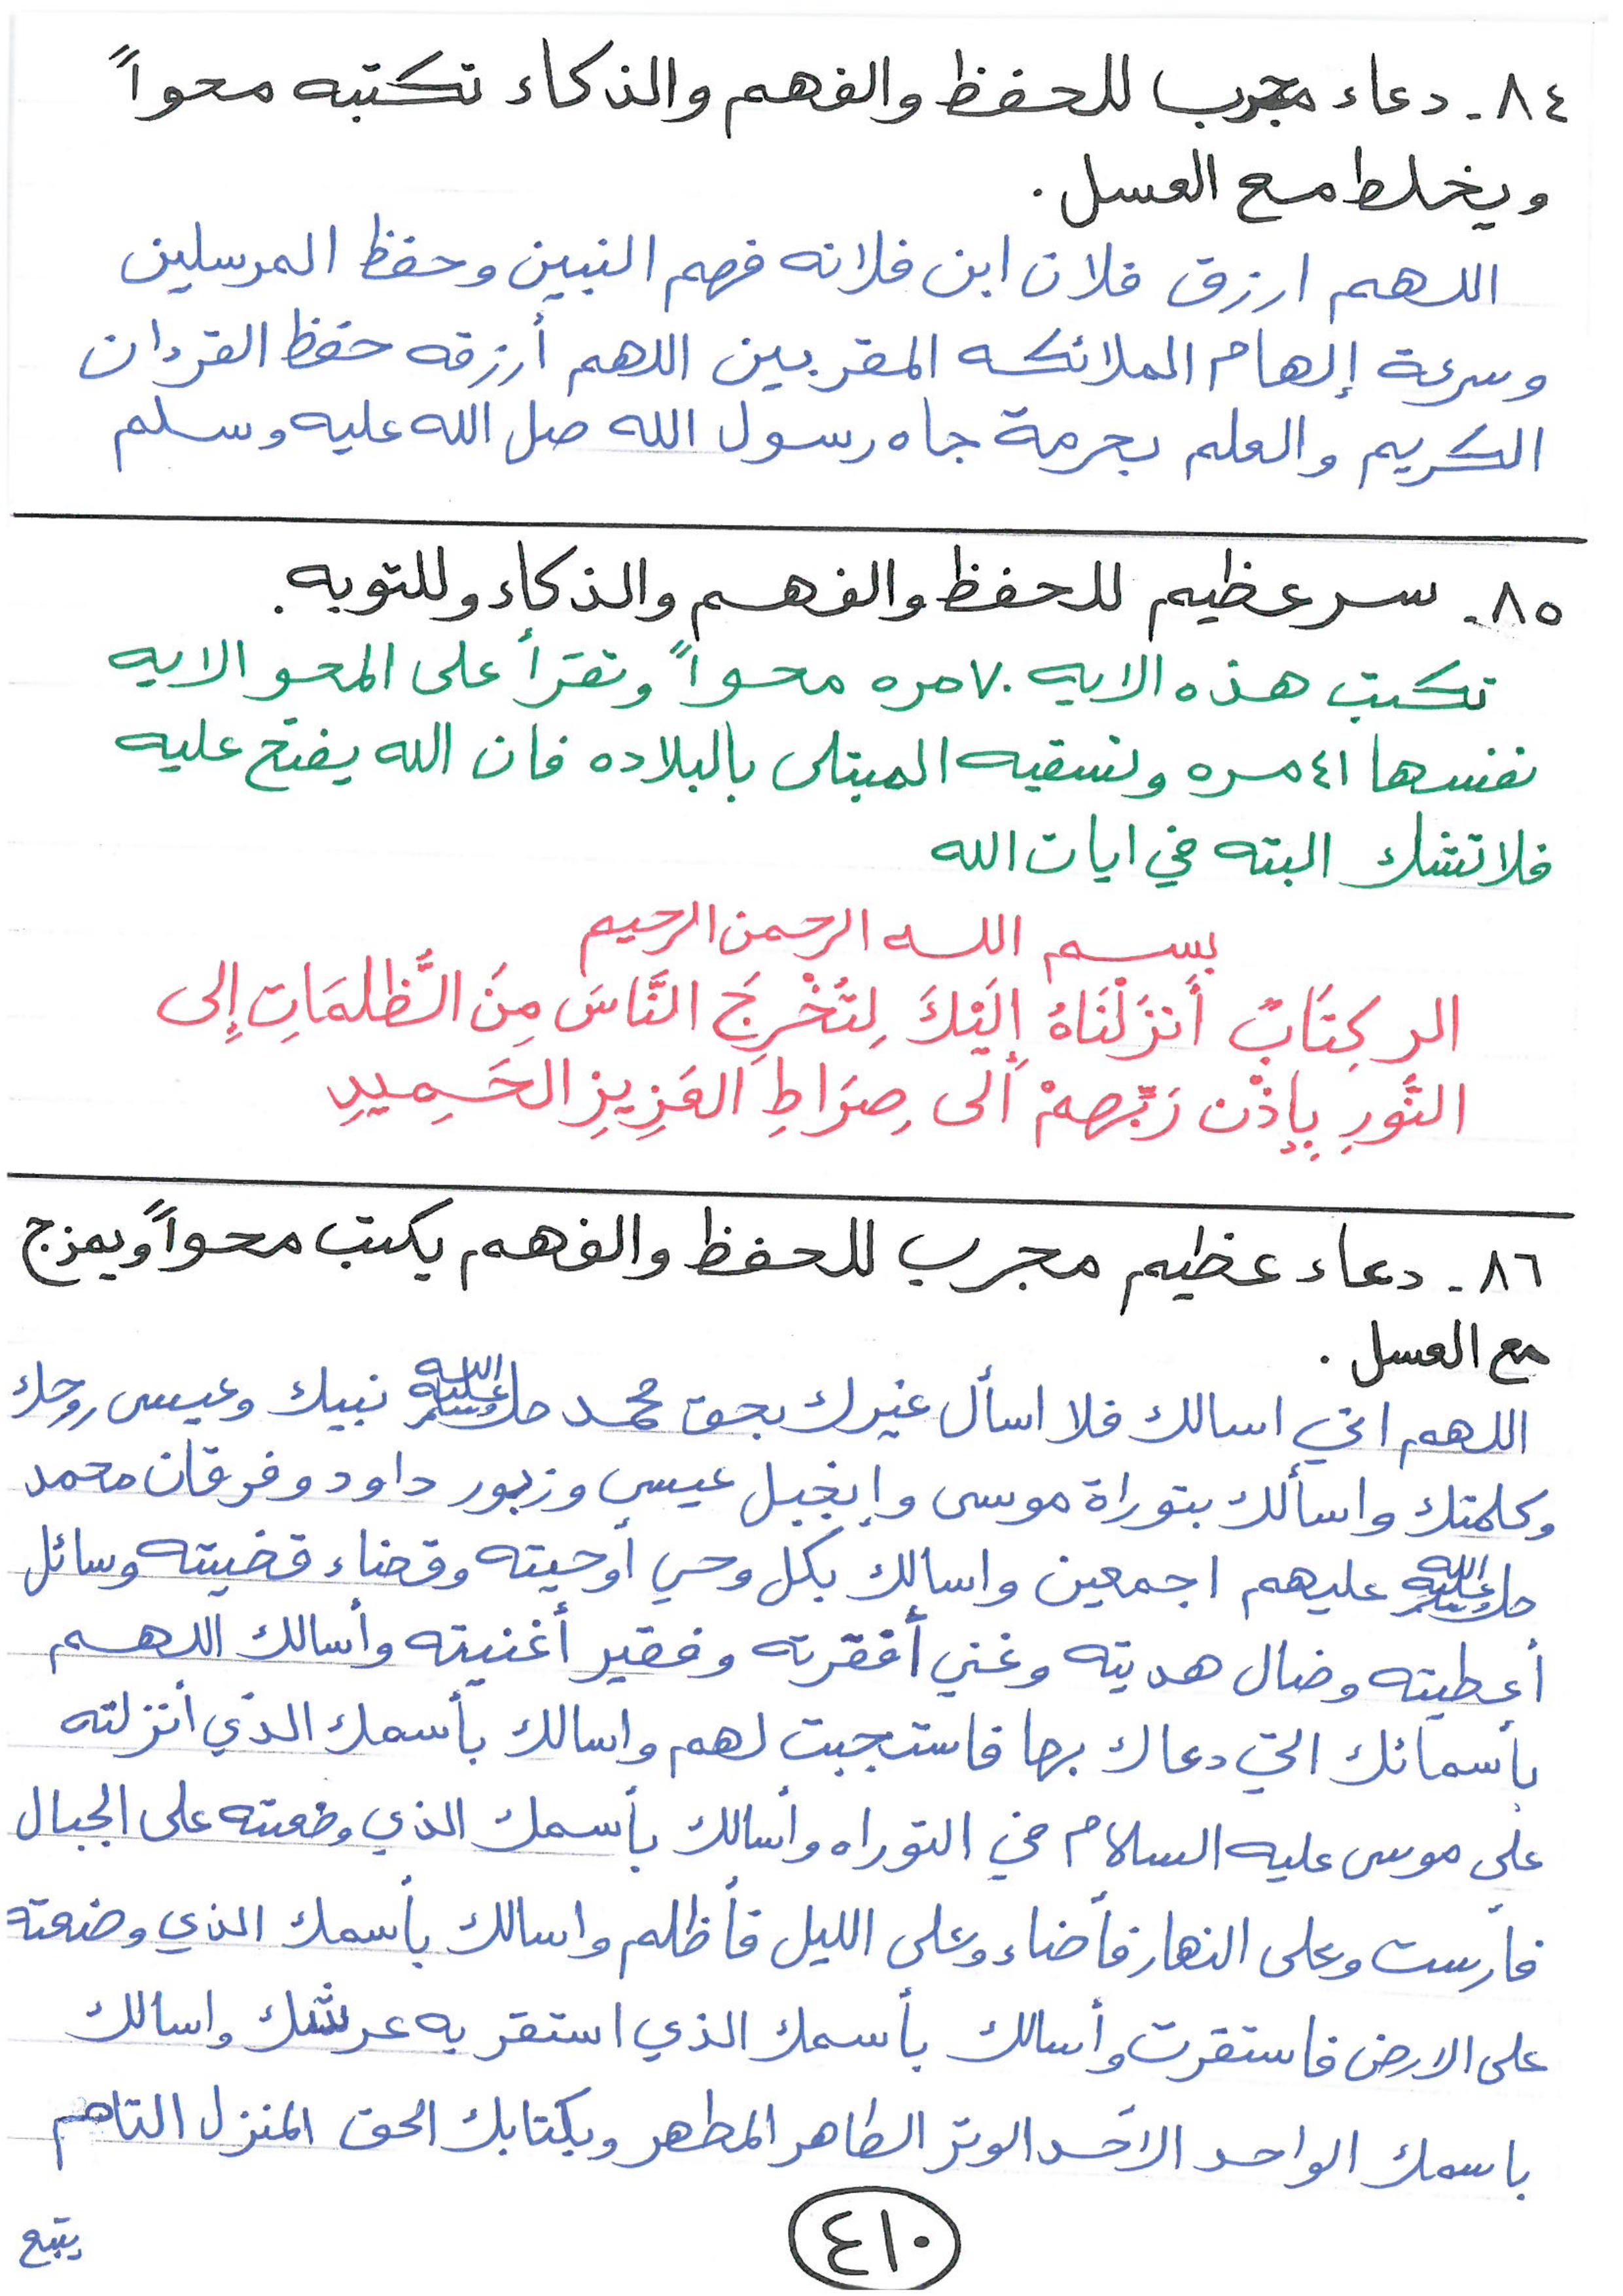 ٨٤- دعاء مجرب للحفظ والفهم والذكاء تكتبه محواً
ويخلط مع العسل .
اللهم ارزق فلان ابن فلانه فهم النبين وحفظ المرسلين
وسرعة إلهام الملائكه المقربين اللهم أرزقه حفظ القرءان
الكريم والعلم بحرمة جاه رسول الله صل الله عليه وسلم
٨٥- سر عظيم للحفظ والفهم والذكاء وللتوبه .
تكتب هذه الايه ٧٠ مره محواً وتقرأ على المحو الايه
نفسها ٤١ مره وتسقيه المبتلى بالبلاده فان الله يفتح عليه
فلا تشك البته في ايات الله
بسم الله الرحمن الرحيم
الر كِتَابٌ أَنزَلْنَاهُ إِلَيْكَ لِتُخْرِجَ النَّاسَ مِنَ الظُّلمَاتِ إِلى
النُّورِ بِإِذْنِ رَبِّهِمْ أِلَى صِرَاطِ العَزِيزِ الحَمِيدِ
٨٦- دعاء عظيم مجرب للحفظ والفهم يكتب محواً ويمزج
مع العسل .
اللهم اني اسالك فلا اسأل غيرك بحق محمد ﷺ نبيك وعيسى روحك
وكلمتك واسألك بتوراة موسى وإنجيل عيسى وزبور داود وفرقان محمد
ﷺ عليهم اجمعين واسالك بكل وحي أوحيته وقضاء قضيته وسائل
أعطيته وضال هديته وغني أفقرته وفقير أغنيته وأسالك اللهم
بأسمائك التي دعاك بها فاستجبت لهم واسالك بأسمك الذي أنزلته
على موسى عليه السلام في التوراه وأسالك بأسمك الذي وضعته على الجبال
فأرست وعلى النهار فأضاء وعلى الليل فأظلم واسالك بأسمك الذي وضعته
على الارض فاستقرت وأسالك بأسمك الذي استقر به عرشك واسالك
باسمك الواحد الأحد الوتر الطاهر المطهر وبكتابك الحق المنزل التام
٤١٠
يتبع